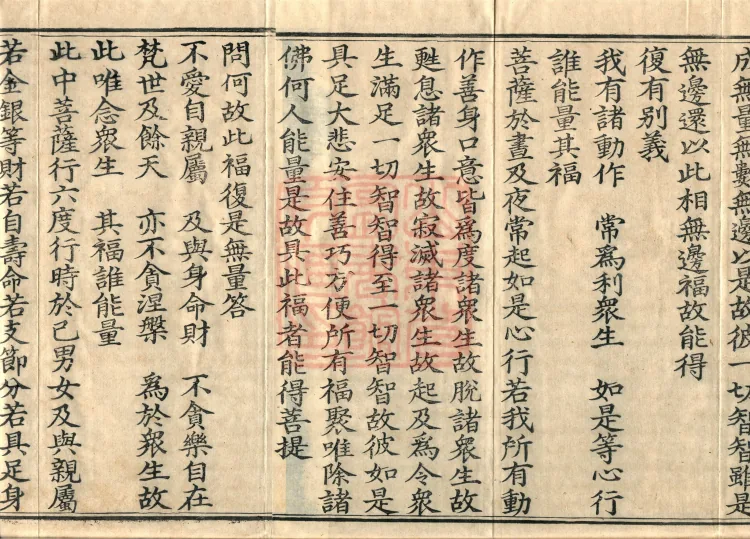 成無量無數無邊以是故彼一切智智雖是
無邊還以此相無邊福故能得
復有别義
我有諸動作　常爲利衆生　如是等心行
誰能量其福
菩薩於晝及夜常起如是心行若我所有動
作善身口意皆爲度諸衆生故脫諸衆生故
甦息諸衆生故寂滅諸衆生故起及爲令衆
生滿足一切智智得至一切智智故彼如是
具足大悲安住善巧方便所有福聚唯除諸
佛何人能量是故具此福者能得菩提
問何故此福復是無量答
不愛自親屬　及與身命財　不貪樂自在
梵世及餘天　亦不貪涅槃　爲於衆生故
此唯念衆生　其福誰能量
此中菩薩行六度行時於己男女及與親屬
若金銀等財若自壽命若支節分若具足身